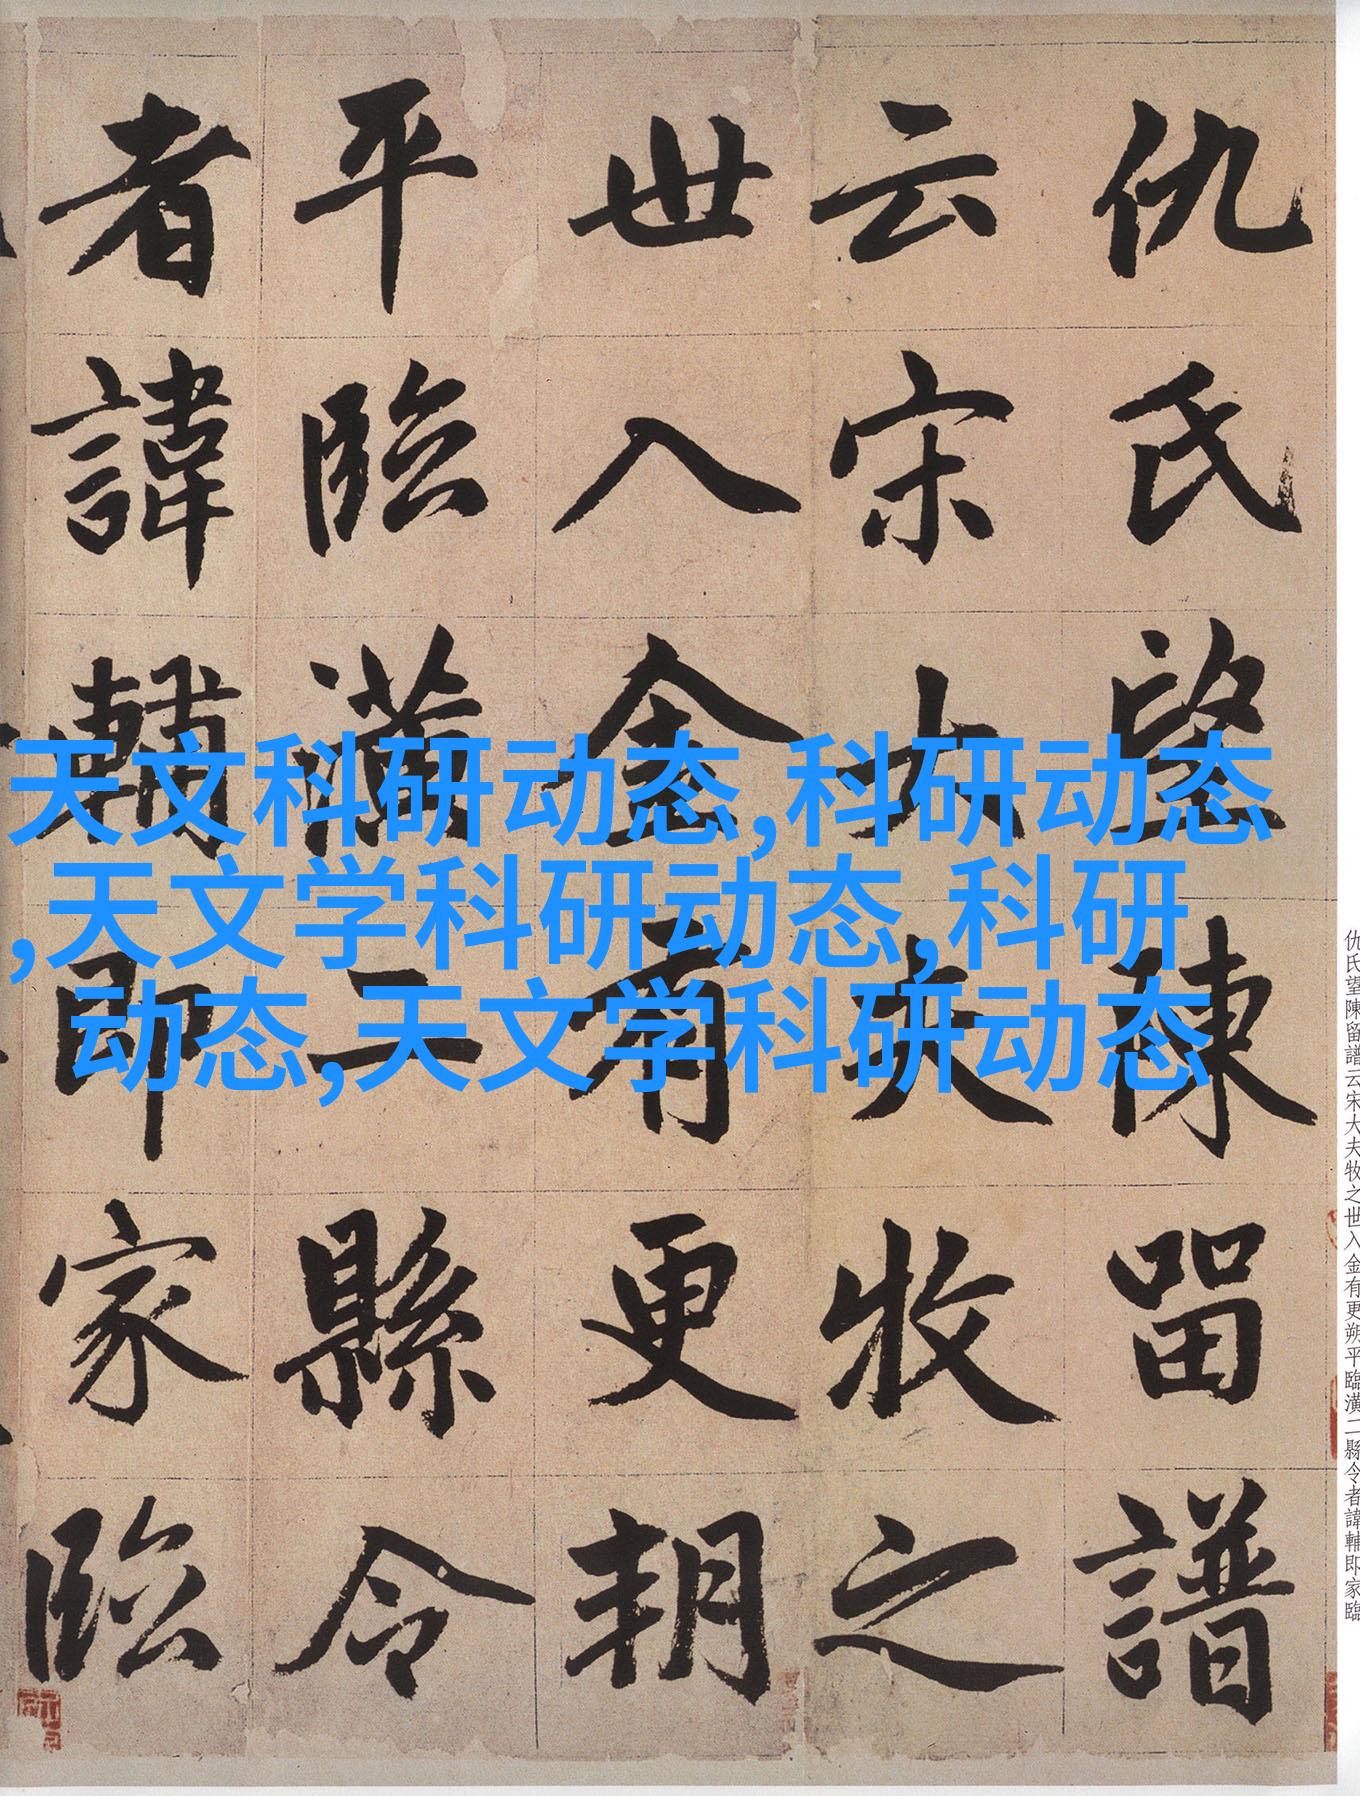 仇氏望陳留譜
云宋大夫牧之
世入金有更朔
平臨潢二縣令
者諱輔即家臨
天文科研动态,科研动态
,天文学科研动态,科研
动态,天文学科研动态
仇氏望陳留譜云宋大夫牧之世入金有更朔平臨潢二縣令者諱輔即家臨